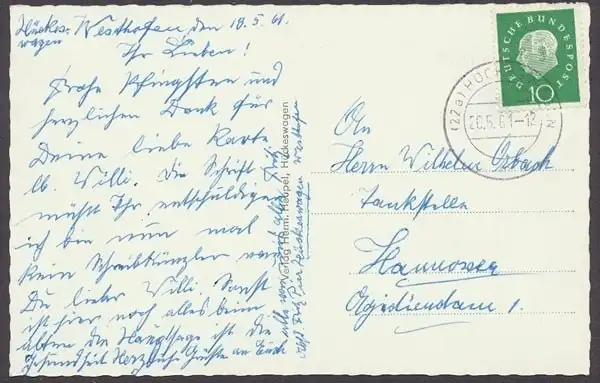 Hückes- Westhofen, den 18.5.61.
wagen
Ihr Lieben!
Frohe Pfingsten und
herzlichen Dank für
Deine liebe Karte
lb. Willi. Die Schrift
müßt Ihr entschuldigen
ich bin nun mal
kein Schreibkünstler
Du lieber Willi. Sonst
ist hier noch alles beim
alten die Hauptsage ist die
Gesundheit Herzliche Grüße an Euch
alle
Hückeswagen Westhofen
Verlag Herm. Heupel, Hückeswagen
DEUTSCHE BUNDESPOST
10
(22a) HÜCKESWAGEN
20.5.61-12
An
Herrn Wilhelm Osbach
Tankstelle
Hannover
Ägidiendam 1.